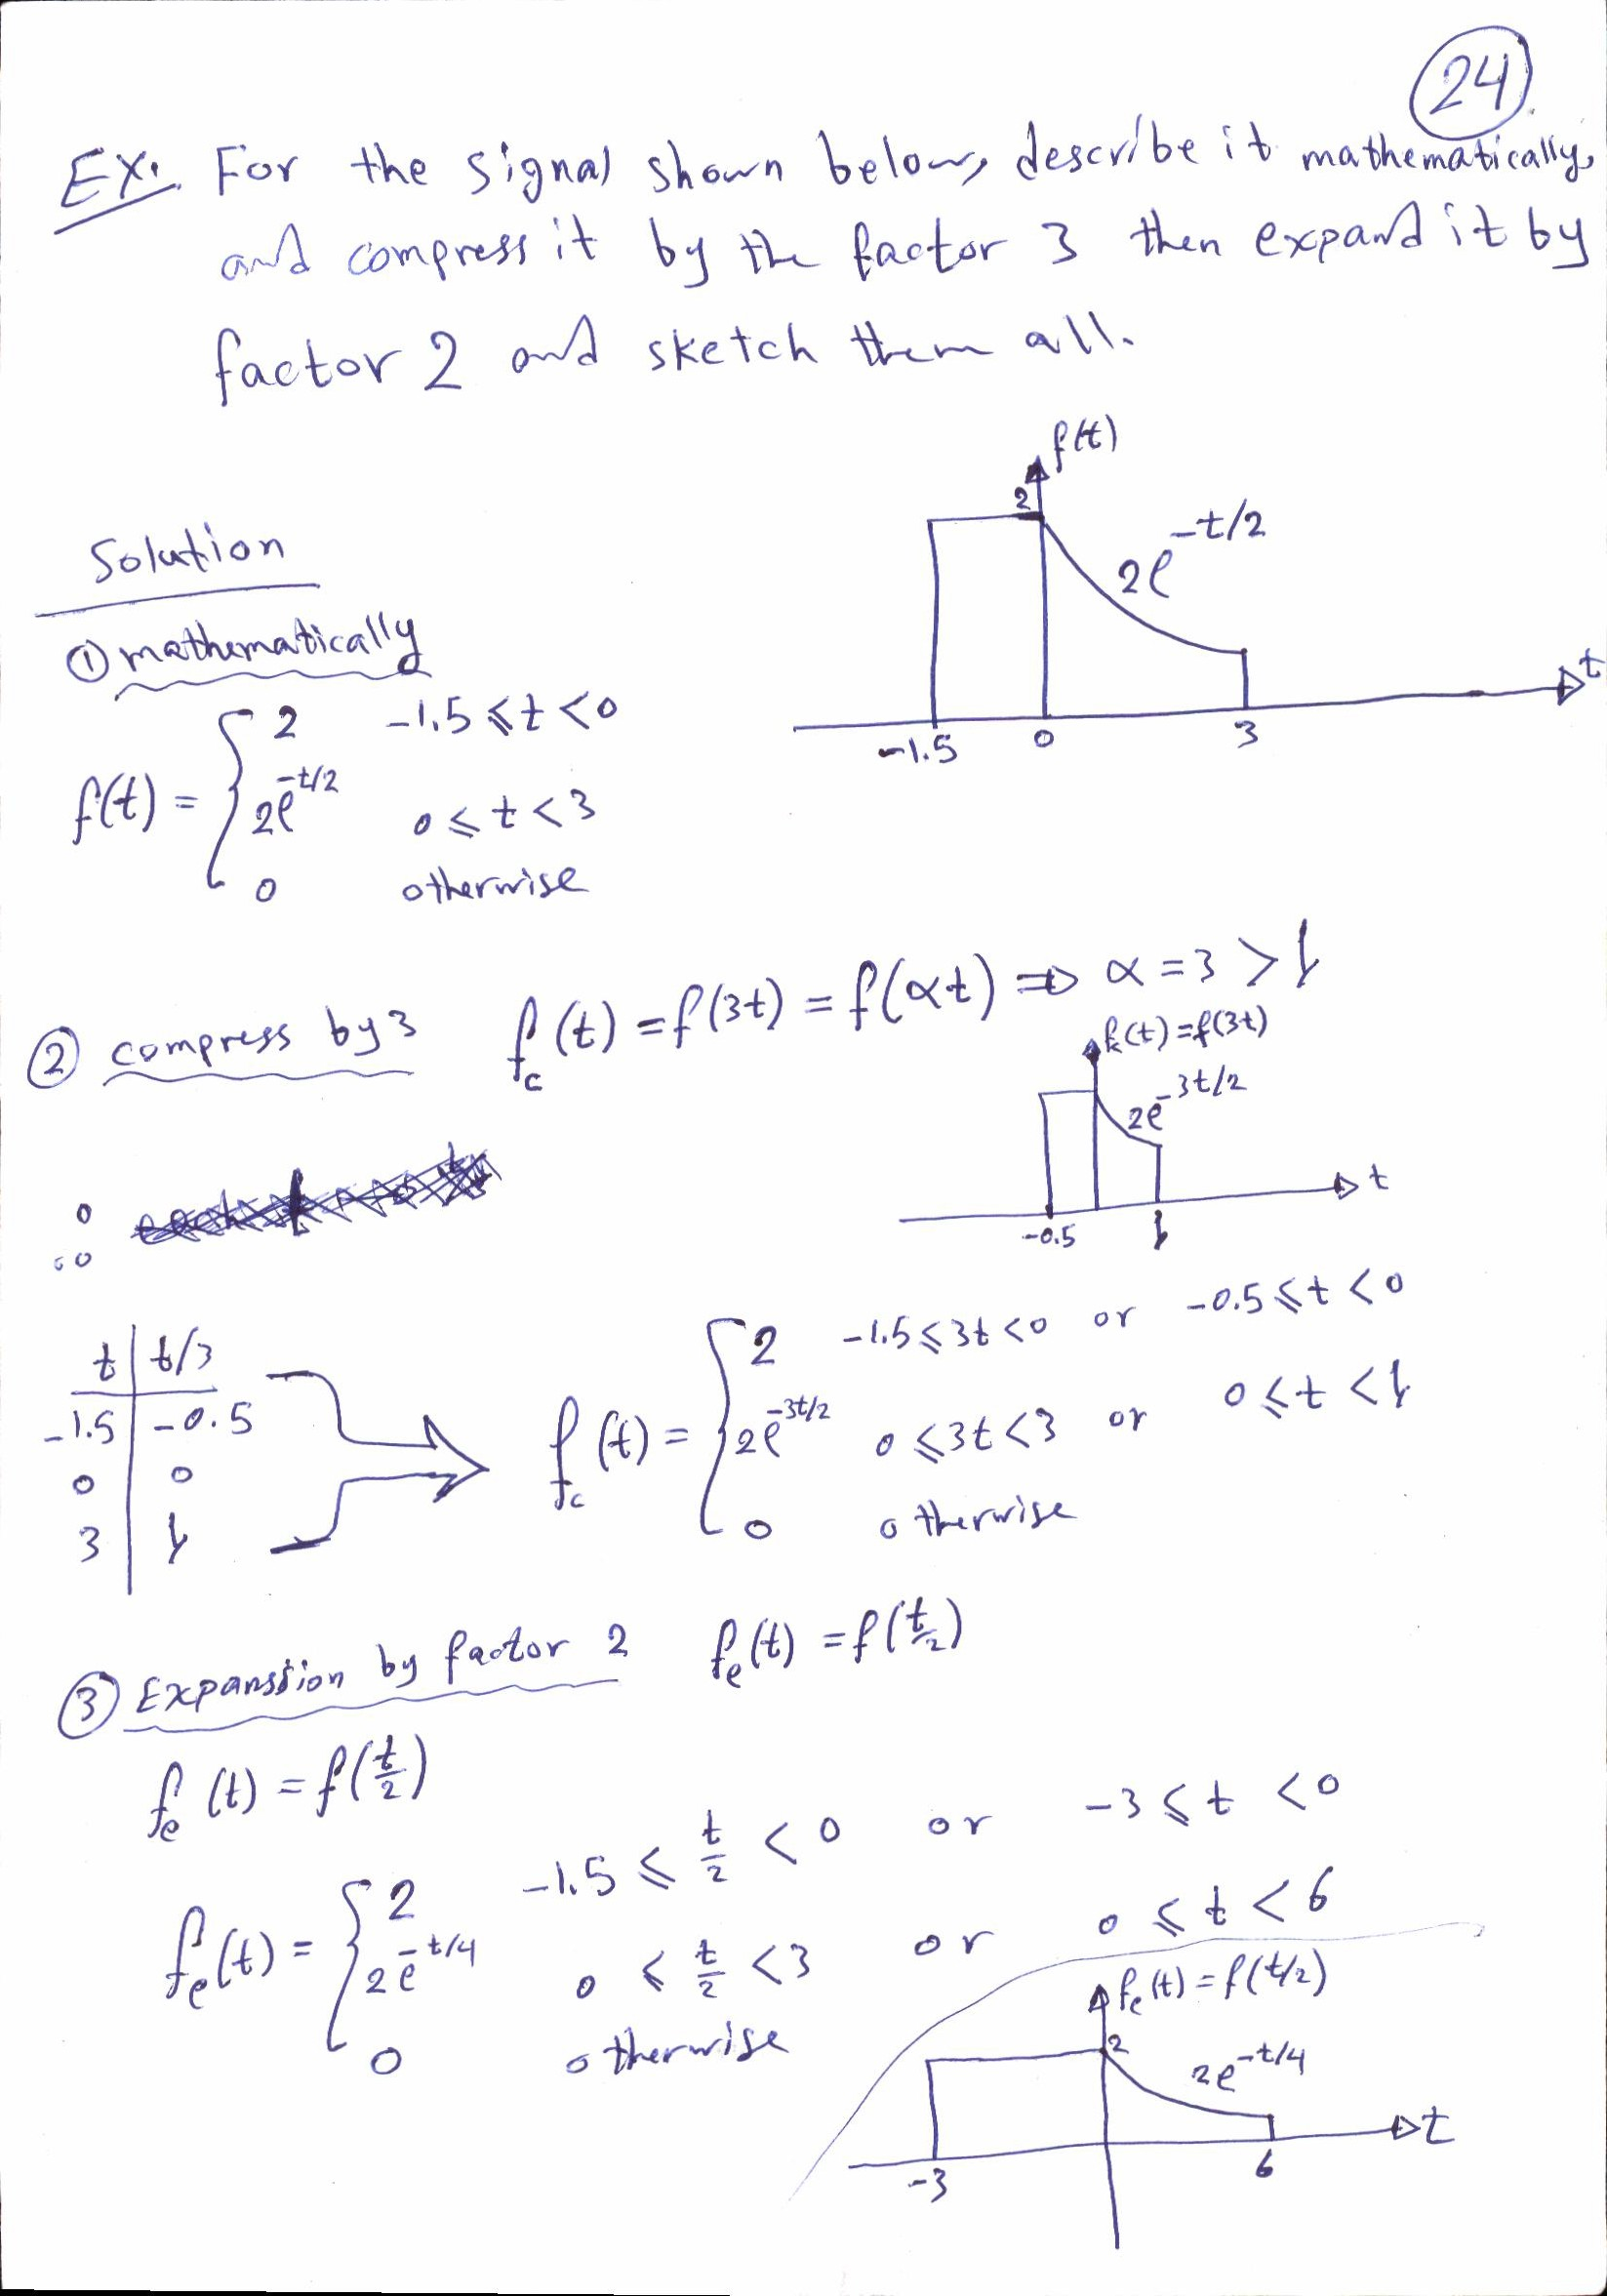 24
Ex. For the signal shown below, describe it mathematically,
and compress it by the factor 3 then expand it by
factor 2 and sketch them all.
f(t)
2
2e^{-t/2}
t
-1.5 0 3
Solution
① mathematically
f(t) = { 2 -1.5 ⩽ t < 0
2e^{-t/2} 0 ⩽ t < 3
0 otherwise
② compress by 3 f_c(t) = f(3t) = f(αt) ⇒ α = 3 > 1
f_c(t) = f(3t)
2e^{-3t/2}
t
-0.5 1
t t/3
-1.5 -0.5
0 0
3 1
f_c(t) = { 2 -1.5 ⩽ 3t < 0 or -0.5 ⩽ t < 0
2e^{-3t/2} 0 ⩽ 3t < 3 or 0 ⩽ t < 1
0 otherwise
③ Expanssion by factor 2 f_e(t) = f(t/2)
f_e(t) = f(t/2)
f_e(t) = { 2 -1.5 ⩽ t/2 < 0 or -3 ⩽ t < 0
2e^{-t/4} 0 ⩽ t/2 < 3 or 0 ⩽ t < 6
0 otherwise
f_e(t) = f(t/2)
2
2e^{-t/4}
t
-3 6